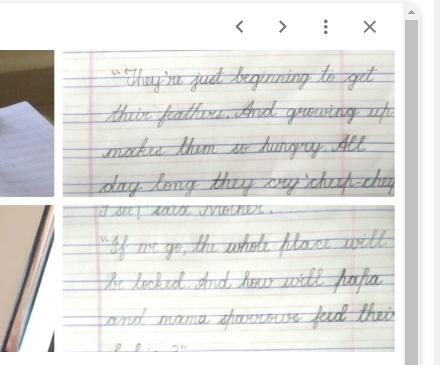 "They're just beginning to get
their feathers. And growing up
makes them so hungry. All
day long they cry 'cheep-chee
I see! said Mother.
"If we go, the whole place will
be locked. And how will papa
and mama sparrows feed their